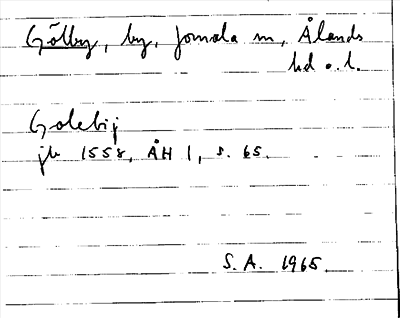 Gölby, by, Jomala sn, Ålands
hd o. l.
Golebij
jb 1558, ÅH 1, s. 65.
S.A. 1965